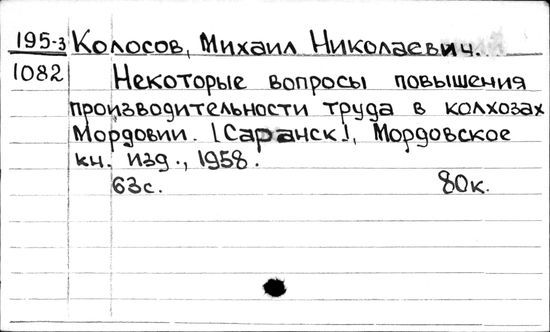 195-3 Колосов, Михаил Николаевич.
1082 Некоторые вопросы повышения
производительности труда в колхозах
Мордовии. [Саранск], Мордовское
кн. изд., 1958.
63с. 80к.